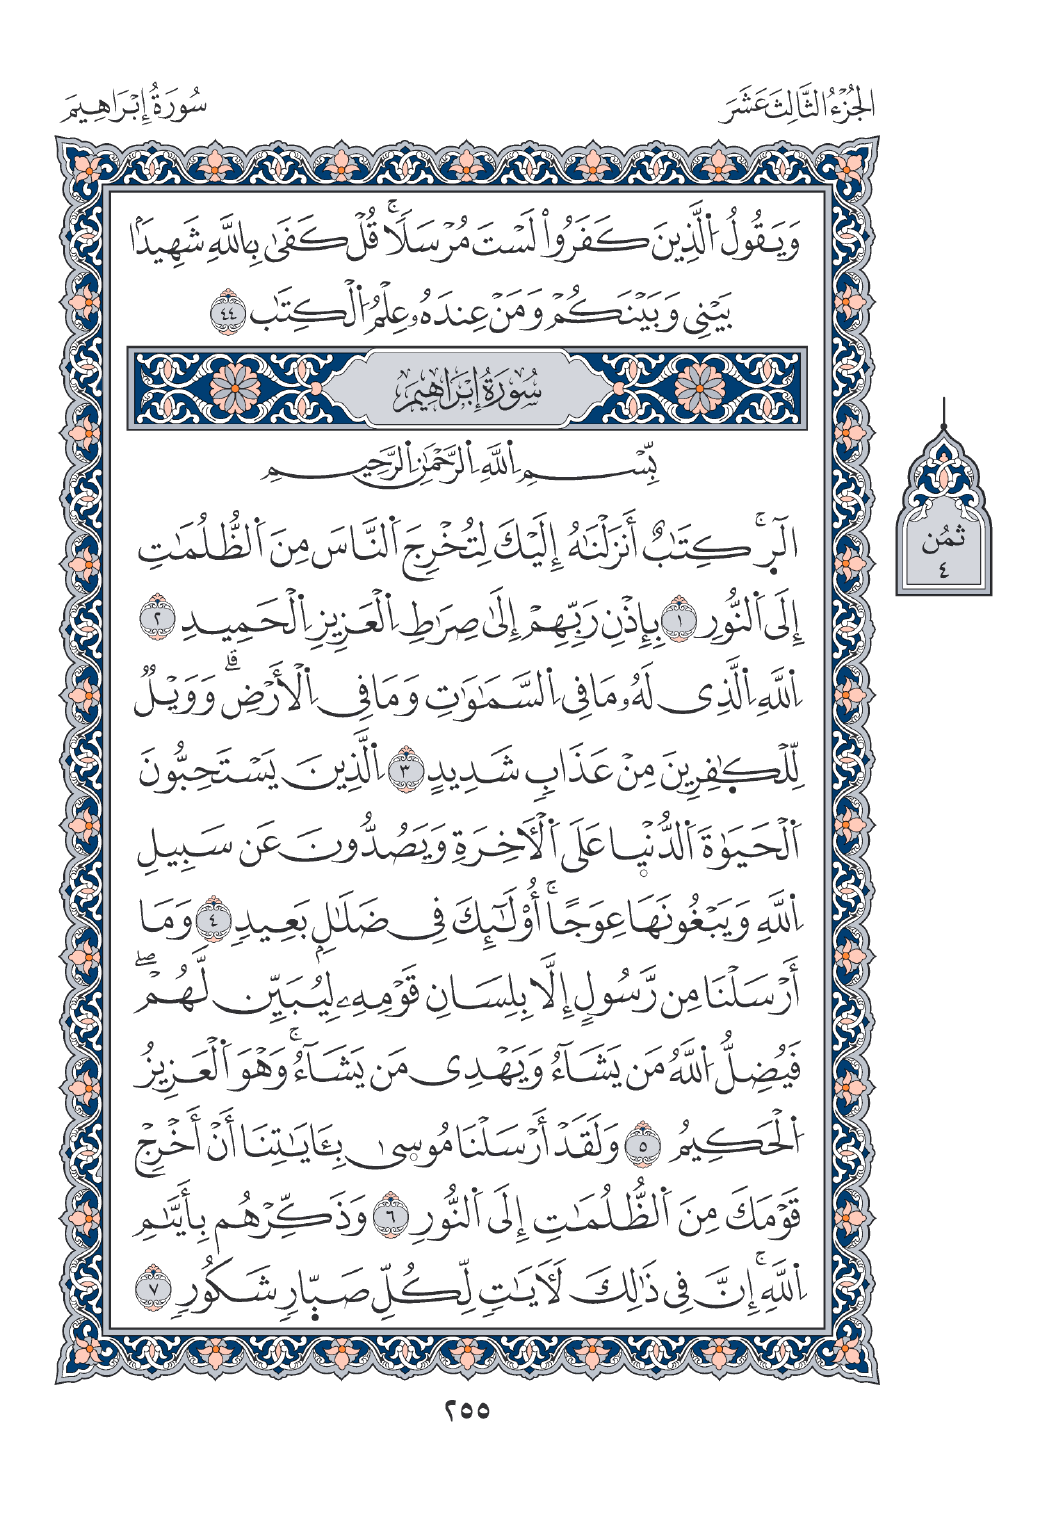 الجُزْءُ الثَّالِثَ عَشَرَ
سُورَةُ إِبْرَاهِيمَ
وَيَقُولُ اُ۬لذِينَ كَفَرُواْ لَسْتَ مُرْسَلاٗۚ قُلْ كَف۪ىٰ بِاللَّهِ شَهِيدَاۢ
بَيْنِي وَبَيْنَكُمْ وَمَنْ عِندَهُۥ عِلْمُ اُ۬لْكِتَٰبِ ٤٤
سُورَةُ إِبْرَاهِيمَ
بِّسْمِ اِ۬للَّهِ اِ۬لرَّحْمَٰنِ اِ۬لرَّحِيمِ
أَل۪ٓرۚ كِتَٰبٌ أَنزَلْنَٰهُ إِلَيْكَ لِتُخْرِجَ اَ۬لنَّاسَ مِنَ اَ۬لظُّلُمَٰتِ
إِلَى اَ۬لنُّورِ ١ بِإِذْنِ رَبِّهِمْ إِلَىٰ صِرَٰطِ اِ۬لْعَزِيزِ اِ۬لْحَمِيدِ ٢
اِ۬للَّهِ اِ۬لذِي لَهُۥ مَا فِي اِ۬لسَّمَٰوَٰتِ وَمَا فِي اِ۬لْأَرْضِۗ وَوَيْلٌ
لِّلْكٰ۪فِرِينَ مِنْ عَذَابٍ شَدِيدٍ ٣ اِ۬لذِينَ يَسْتَحِبُّونَ
اَ۬لْحَيَوٰةَ اَ۬لدُّنْي۪ا عَلَى اَ۬لْأٓخِرَةِ وَيَصُدُّونَ عَن سَبِيلِ
اِ۬للَّهِ وَيَبْغُونَهَا عِوَجًاۚ أُوْلَٰٓئِكَ فِي ضَلَٰلِۢ بَعِيدٖ ٤ وَمَا
أَرْسَلْنَا مِن رَّسُولٍ إِلَّا بِلِسَانِ قَوْمِهِۦ لِيُبَيِّن لَّهُمْۖ
فَيُضِلُّ اُ۬للَّهُ مَن يَشَآءُ وَيَهْدِي مَن يَشَآءُۚ وَهْوَ اَ۬لْعَزِيزُ
اُ۬لْحَكِيمُ ٥ وَلَقَدْ أَرْسَلْنَا مُوس۪ىٰ بِـَٔايَٰتِنَا أَنْ أَخْرِجْ
قَوْمَكَ مِنَ اَ۬لظُّلُمَٰتِ إِلَى اَ۬لنُّورِ ٦ وَذَكِّرْهُم بِأَيَّىٰمِ
اِ۬للَّهِۚ إِنَّ فِي ذَٰلِكَ لَأٓيَٰتٖ لِّكُلِّ صَبّ۪ارٖ شَكُورٖ ٧
ثُمُن
٤
٢٥٥